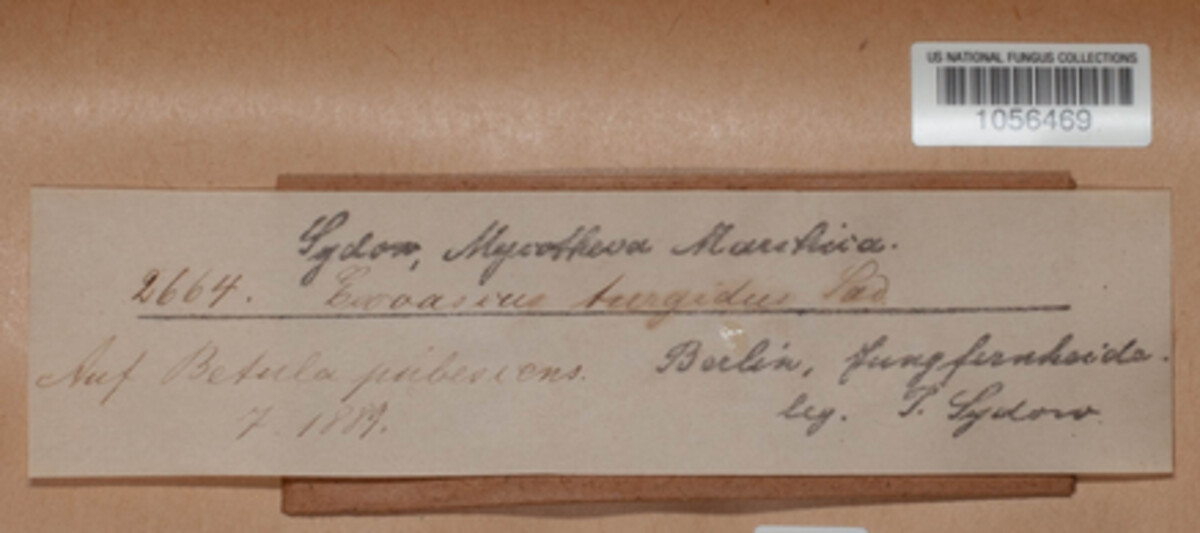 US NATIONAL FUNGUS COLLECTIONS
1056469
Sydow, Mycotheca Marchica.
2664. Exoascus turgidus Sad.
Auf Betula pubescens. Berlin, Jungfernheide.
7. 1889. leg. P. Sydow.